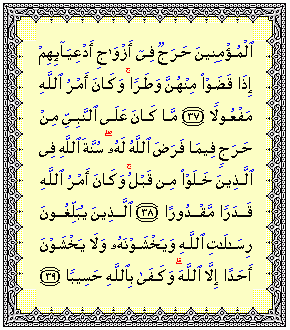 ٱلْمُؤْمِنِينَ حَرَجٌ فِىٓ أَزْوَٰجِ أَدْعِيَآئِهِمْ
إِذَا قَضَوْا۟ مِنْهُنَّ وَطَرًا ۚ وَكَانَ أَمْرُ ٱللَّهِ
مَفْعُولًا ﴿٣٧﴾ مَّا كَانَ عَلَى ٱلنَّبِىِّ مِنْ
حَرَجٍ فِيمَا فَرَضَ ٱللَّهُ لَهُۥ ۖ سُنَّةَ ٱللَّهِ فِى
ٱلَّذِينَ خَلَوْا۟ مِن قَبْلُ ۚ وَكَانَ أَمْرُ ٱللَّهِ
قَدَرًا مَّقْدُورًا ﴿٣٨﴾ ٱلَّذِينَ يُبَلِّغُونَ
رِسَٰلَٰتِ ٱللَّهِ وَيَخْشَوْنَهُۥ وَلَا يَخْشَوْنَ
أَحَدًا إِلَّا ٱللَّهَ ۗ وَكَفَىٰ بِٱللَّهِ حَسِيبًا ﴿٣٩﴾